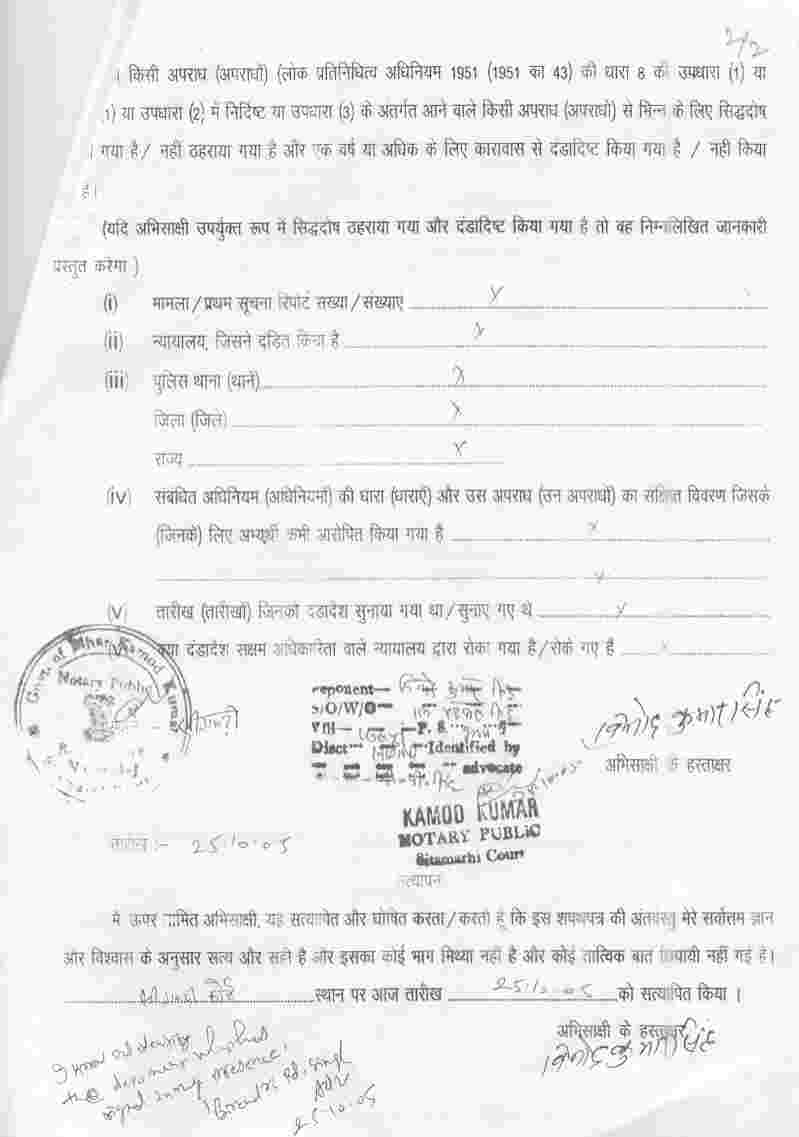 2/2
। किसी अपराध (अपराधों) (लोक प्रतिनिधित्व अधिनियम 1951 (1951 का 43) की धारा 8 की उपधारा (1) या
1) या उपधारा (2) में निर्दिष्ट या उपधारा (3) के अंतर्गत आने वाले किसी अपराध (अपराधों) से भिन्न के लिए सिद्धदोष
गया है / नहीं ठहराया गया है और एक वर्ष या अधिक के लिए कारावास से दंडादिष्ट किया गया है / नही किया
है।
(यदि अभिसाक्षी उपर्युक्त रूप में सिद्धदोष ठहराया गया और दंडादिष्ट किया गया है तो वह निम्नलिखित जानकारी
प्रस्तुत करेगा )
(i) मामला / प्रथम सूचना रिपोर्ट संख्या / संख्याए x
(ii) न्यायालय, जिसने दंडित किया है x
(iii) पुलिस थाना (थाने) x
जिला (जिले) x
राज्य x
(iv) संबंधित अधिनियम (अधिनियमों) की धारा (धाराएँ) और उस अपराध (उन अपराधों) का संक्षिप्त विवरण जिसके
(जिनके) लिए अभ्यर्थी कभी आरोपित किया गया है x
x
(v) तारीख (तारीखों) जिनको दंडादेश सुनाया गया था / सुनाए गए थे x
क्या दंडादेश सक्षम अधिकारिता वाले न्यायालय द्वारा रोका गया है / रोके गए है x
Govt. of Bihar Kamod Kumar
Notary Public
eponent—
S/O/W/O—
Vill— P. S.
Disct— Identified by
advocate
विनोद कुमार सिंह
अभिसाक्षी के हस्ताक्षर
KAMOD KUMAR
NOTARY PUBLIC
Sitamarhi Court
तारीख :- 25.10.05
सत्यापन
मैं ऊपर नामित अभिसाक्षी, यह सत्यापित और घोषित करता / करती हूँ कि इस शपथपत्र की अंतर्वस्तु मेरे सर्वोत्तम ज्ञान
और विश्वास के अनुसार सत्य और सही है और इसका कोई भाग मिथ्या नहीं है और कोई तात्विक बात छिपायी नहीं गई है।
स्थान पर आज तारीख 25.10.05 को सत्यापित किया ।
अभिसाक्षी के हस्ताक्षर
विनोद कुमार सिंह
signed in my presence.
Singh
Adv
25-10-05